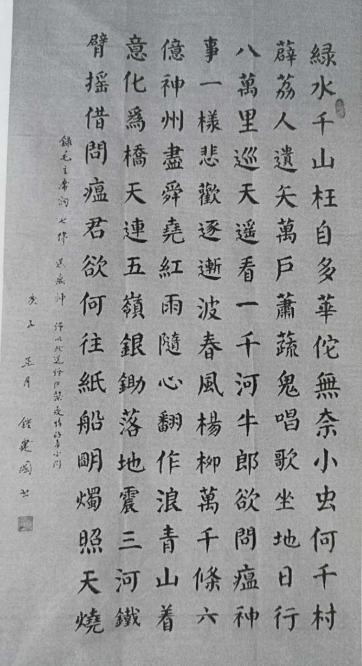 緑水千山枉自多華佗無奈小虫何千村
薜荔人遺矢萬戶蕭蔬鬼唱歌坐地日行
八萬里巡天遥看一千河牛郎欲問瘟神
事一樣悲歡逐漸波春風楊柳萬千條六
億神州盡舜堯紅雨隨心翻作浪青山着
意化爲橋天連五嶺銀鋤落地震三河鐵
臂摇借問瘟君欲何往紙船明燭照天燒
錄毛主席詞七律 送瘟神
庚子 正月